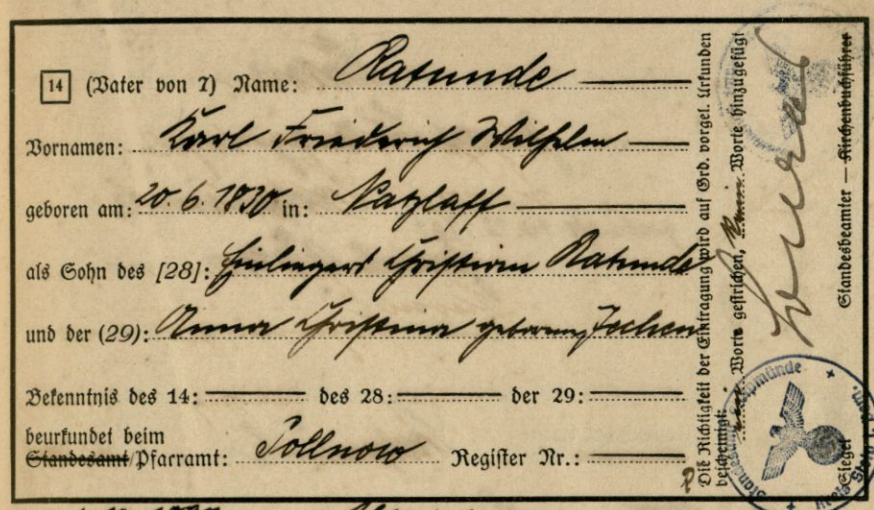 14 (Vater von 7) Name: Ratunde
Vornamen: Karl Friederich Wilhelm
geboren am: 20. 6. 1830 in: Natzlaff
als Sohn des [28]: Einliegers Christian Ratunde
und der (29): Anna Christina geborene Jochen
Bekenntnis des 14: des 28: der 29:
beurkundet beim
Standesamt/Pfarramt: Pollnow Register Nr.:
Die Richtigkeit der Eintragung wird auf Grd. vorgel. Urkunden
bescheinigt:
Worte gestrichen, Worte hinzugefügt
Standesbeamter — Kirchenbuchführer
Siegel